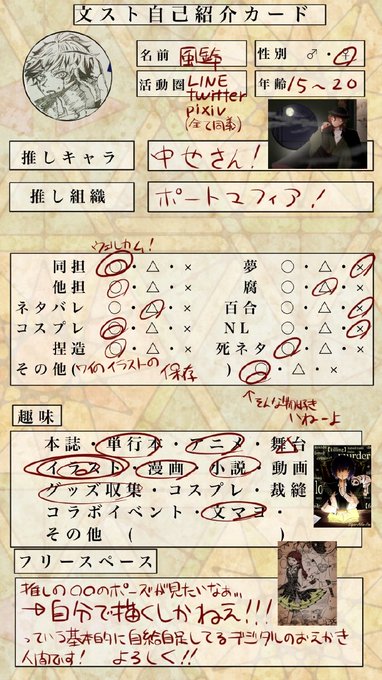 文スト自己紹介カード
名前 風鈴 性別 ♂・♀
活動圏 LINE twitter pixiv (全て同義) 年齢 15〜20
推しキャラ 中也さん!
推し組織 ポートマフィア!
ウェルカム!
同担 ○・△・× 夢 ○・△・×
他担 ○・△・× 腐 ○・△・×
ネタバレ ○・△・× 百合 ○・△・×
コスプレ ○・△・× NL ○・△・×
捏造 ○・△・× 死ネタ ○・△・×
その他(ワイのイラストの保存) ○・△・×
↑そんな物好きいねーよ
趣味
本誌・単行本・アニメ・舞台
イラスト・漫画・小説・動画
グッズ収集・コスプレ・裁縫
コラボイベント・文マヨ・
その他 ( )
フリースペース
推しの○○のポーズが見たいなぁ,,,
→自分で描くしかねぇ!!!
っている基本的に自給自足してるデジタルのおえかき
人間です! よろしく!!